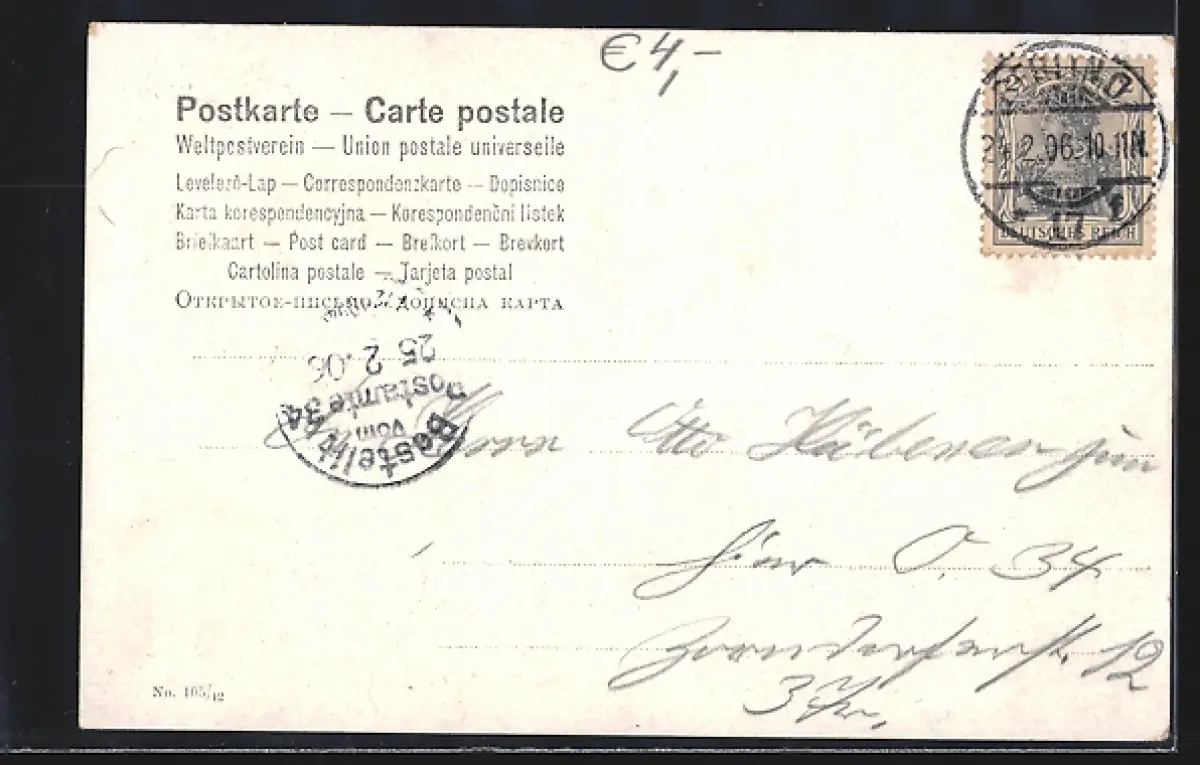 € 4,-
Postkarte — Carte postale
Weltpostverein — Union postale universelle
Levelező-Lap — Correspondenzkarte — Dopisnice
Karta korespondencyjna — Korespondenční listek
Briefkaart — Post card — Brefkort — Brevkort
Cartolina postale — Tarjeta postal
Открытое-письмо Дописна карта
2
24.2.06.10-11N.
17
DEUTSCHES REICH
Bestellt
vom
Postamte 34
25 2.06
Herrn Otto
hier O. 34
12
3 Tr.
No. 105/12